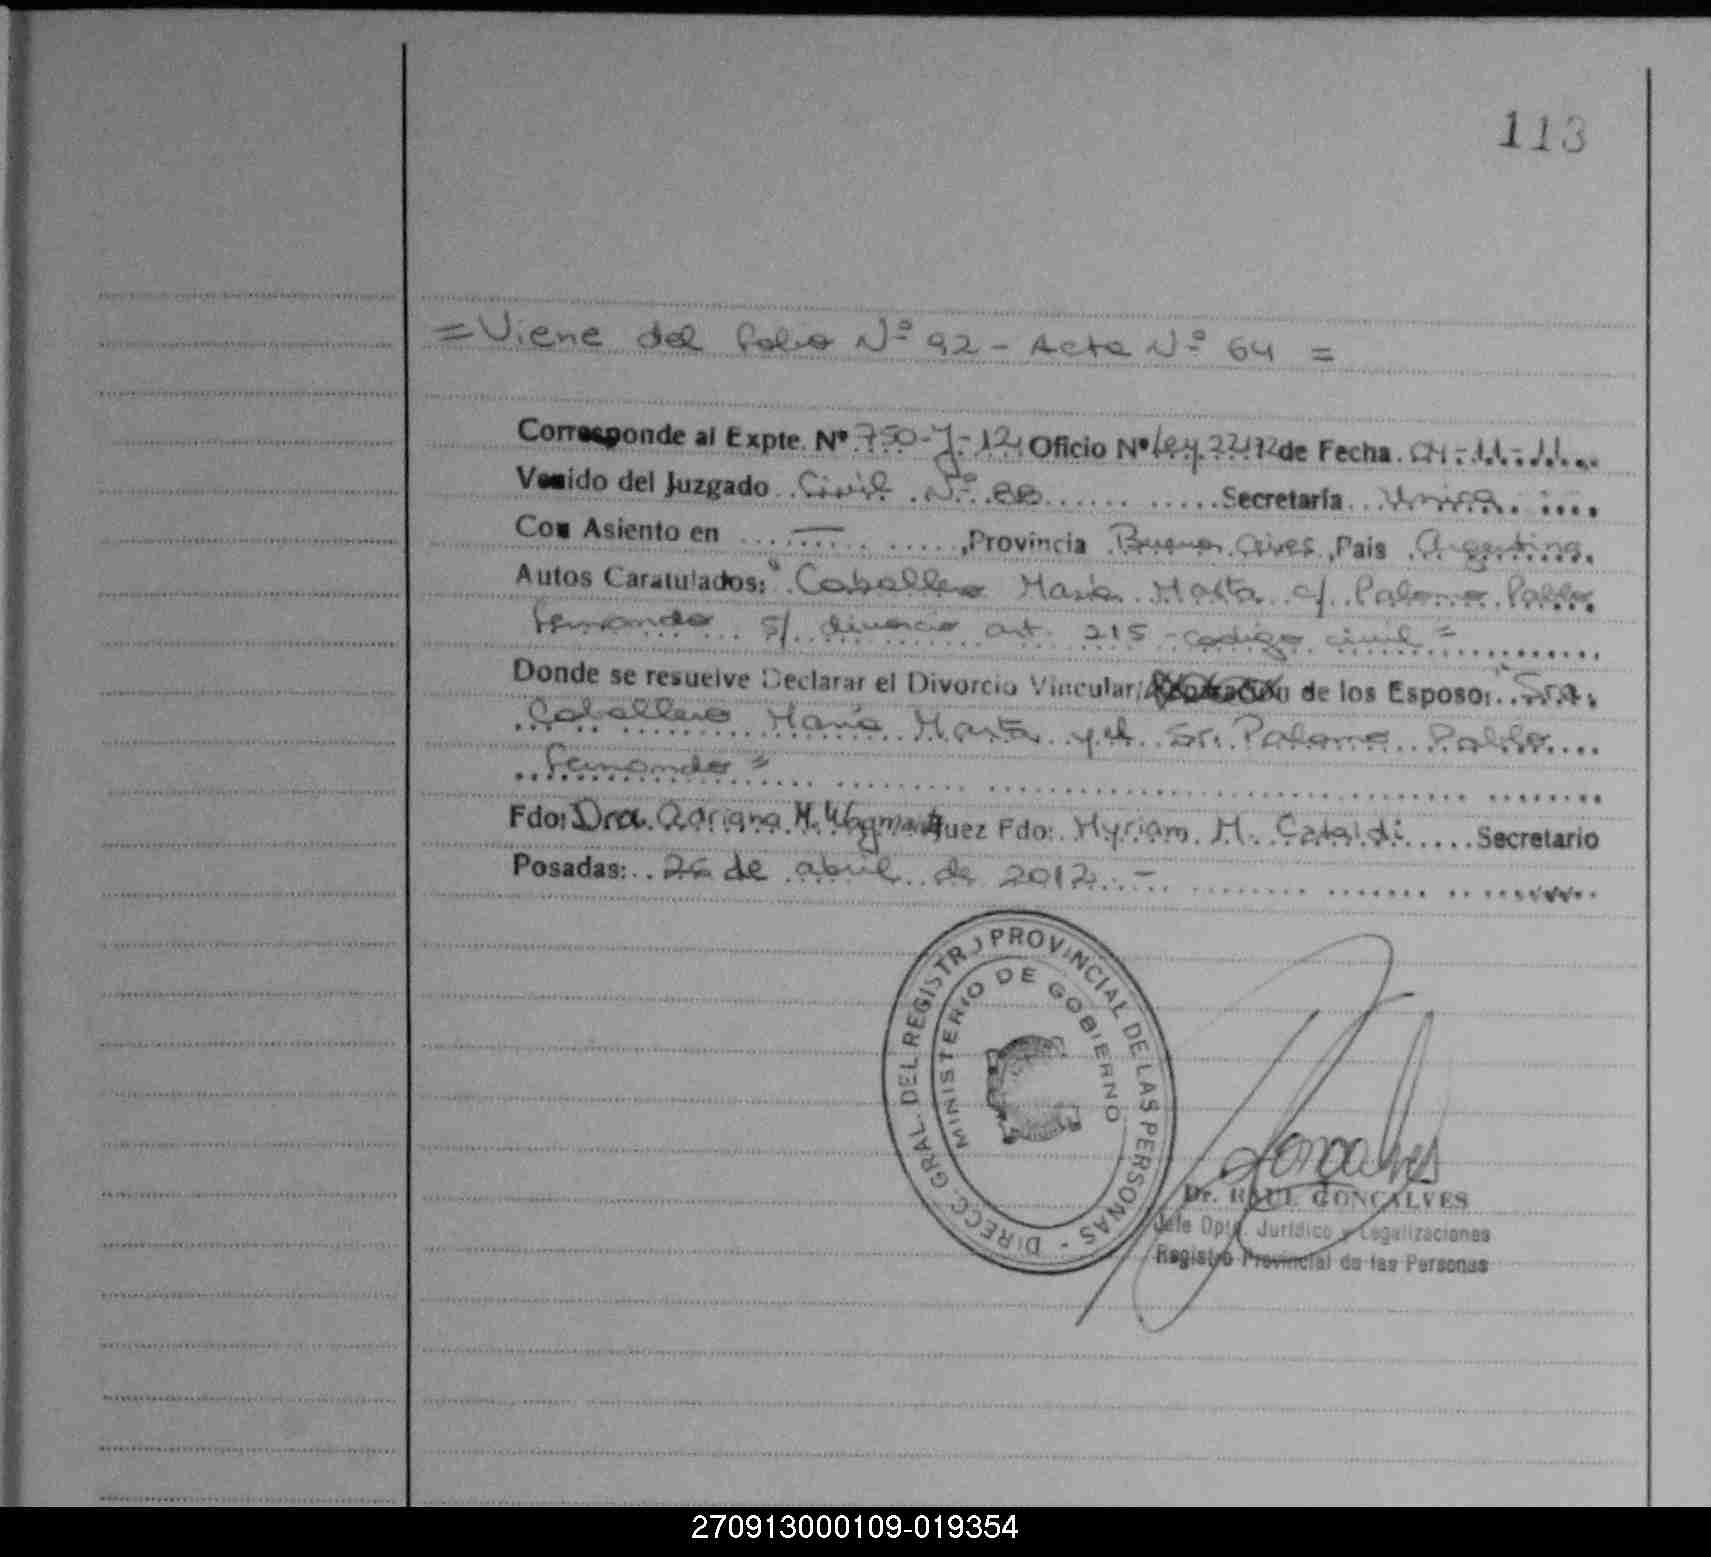 113
= Viene del folio Nº 92 - Acta Nº 64 =
Corresponde al Expte. Nº 750-J-12, Oficio Nº Ley 22172 de Fecha 04-11-11
Venido del Juzgado Civil Nº 88 Secretaría Unica
Con Asiento en — ,Provincia Buenos Aires ,Pais Argentina
Autos Caratulados: "Caballero María Marta c/ Palomo Pablo
Fernando s/ divorcio art. 215 - codigo civil"
Donde se resuelve Declarar el Divorcio Vincular/ de los Esposos: Sra.
Caballero María Marta y el Sr. Palomo Pablo
Fernando =
Fdo: Dra. Adriana M. Wagman Juez Fdo: Myriam M. Cataldi Secretario
Posadas: 26 de abril de 2012 -
DIRECC. GRAL. DEL REGISTRO PROVINCIAL DE LAS PERSONAS -
MINISTERIO DE GOBIERNO
Goncalves
Dr. RAUL GONCALVES
Jefe Dpto. Jurídico y Legalizaciones
Registro Provincial de las Personas
270913000109-019354